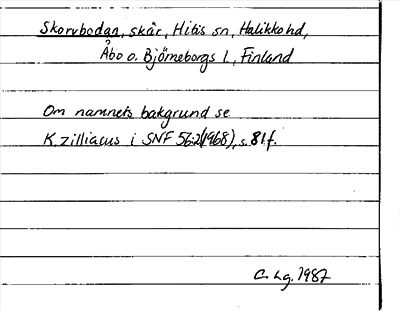 Skorvbodan, skär, Hitis sn, Halikko hd,
Åbo o. Björneborgs l., Finland
Om namnets bakgrund se
K. Zilliacus i SNF 56:2(1968), s. 81 f.
C. Lg. 1987